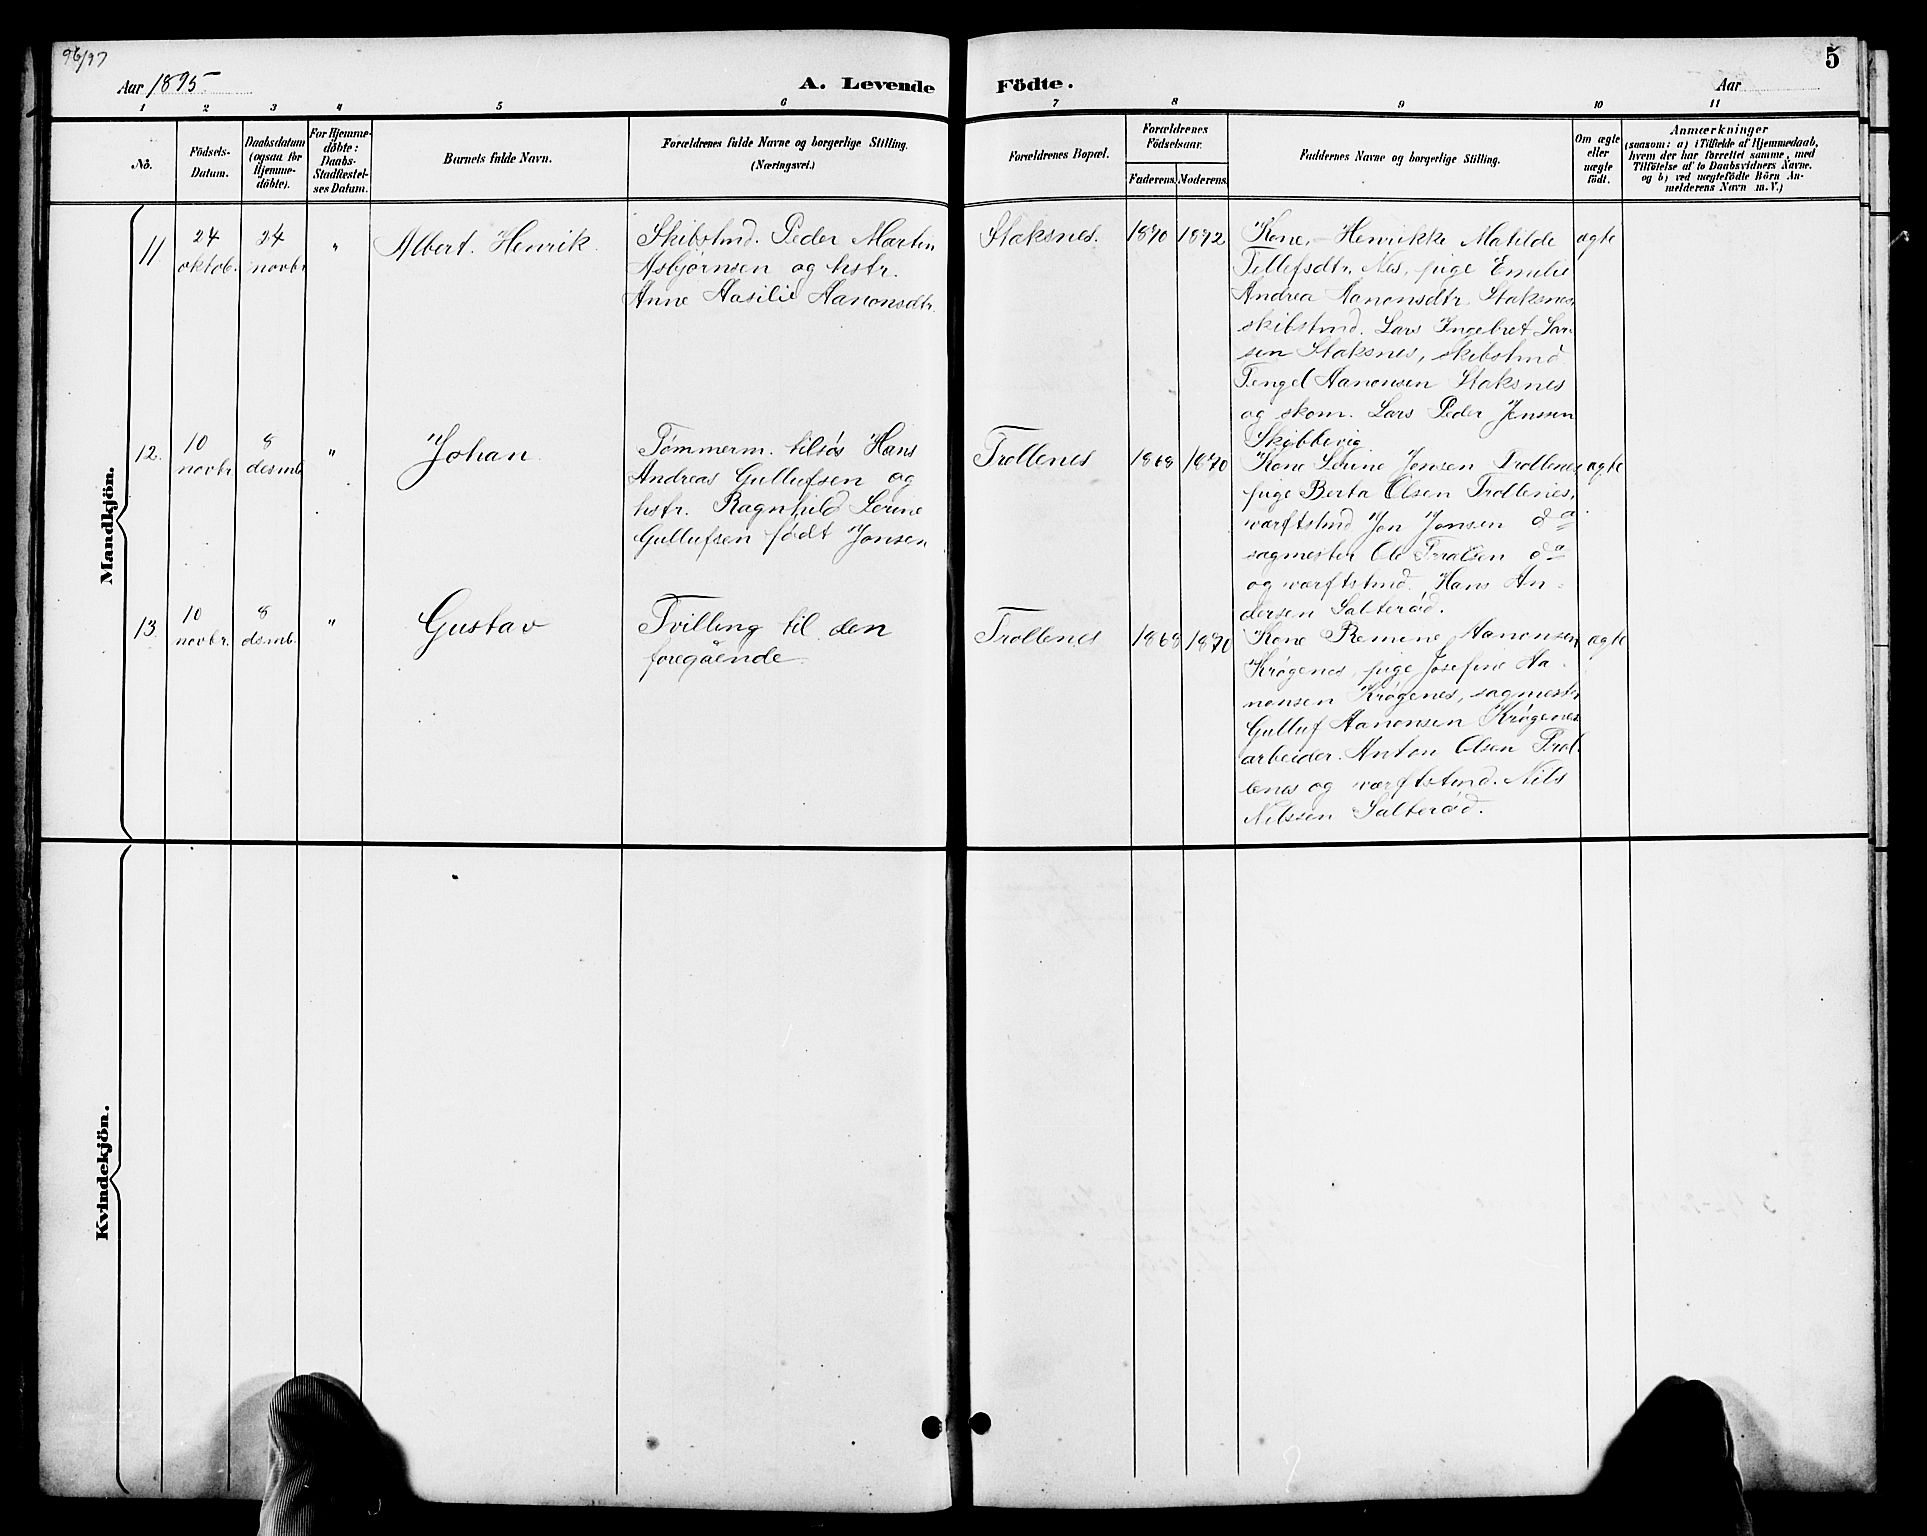 96/97
Aar 1895
A. Levende Födte.
Aar
5
1 2 3 4 5 6 7 8 9 10 11
No.
Födsels-
Datum.
Daabsdatum
(ogsaa for
Hjemme-
döbte).
For Hjemme-
döbte:
Daabs-
Stadfæstel-
ses Datum.
Barnets fulde Navn.
Forældrenes fulde Navne og borgerlige Stilling.
(Næringsvei.)
Forældrenes Bopæl.
Forældrenes
Födselsaar.
Faderens. Moderens.
Faddernes Navne og borgerlige Stilling.
Om ægte
eller
uægte
födt.
Anmærkninger
(saasom: a) i Tilfælde af Hjemmedaab,
hvem der har forrettet samme, med
Tilföielse af to Daabsvidners Navne.
og b) ved uægtefödte Börn An-
melderens Navn m. V.)
Mandkjön.
11
24
oktob.
24
novbr
"
Albert Henrik
Skibstmd. Peder Martin
Asbjørnsen og hstr.
Anne Aasilie Aanonsdtr
Staksnes.
1870 1872
Kone, Henrikke Matilde
Tellefsdtr. Nes, pige Emilie
Andrea Aanonsdtr Staksnes,
skibstmd. Lars Ingebret Lar-
sen Staksnes, skibstmd
Tengel Aanonsen Staksnes
og skom. Lars Peder Jensen
Skibbevig
ægte
12.
10
novbr
8
desmb.
"
Johan
Tømmerm. tilsøs Hans
Andreas Gullufsen og
hstr. Ragnhild Serine
Gullufsen født Jonsen
Trollenes
1868 1870
Kone Serine Jonsen Trollenes
pige Berta Olsen Trollenes,
værftstmd Jon Jonsen da
sagmester Ole Trolsen da
og værftstmd. Hans An-
dersen Salterød.
ægte
13.
10
novbr.
8
dsmb.
"
Gustav
Tvilling til den
foregående
Trollenes
1868 1870
Kone Remine Aanonsen
Krøgenes, pige Josefine Aa-
nonsen Krøgenes, sagmester
Gulluf Aanonsen Krøgenes
arbeider Anton Olsen Trol-
lenes og værftstmd. Nils
Nilssen Salterød.
ægte
Kvindekjön.